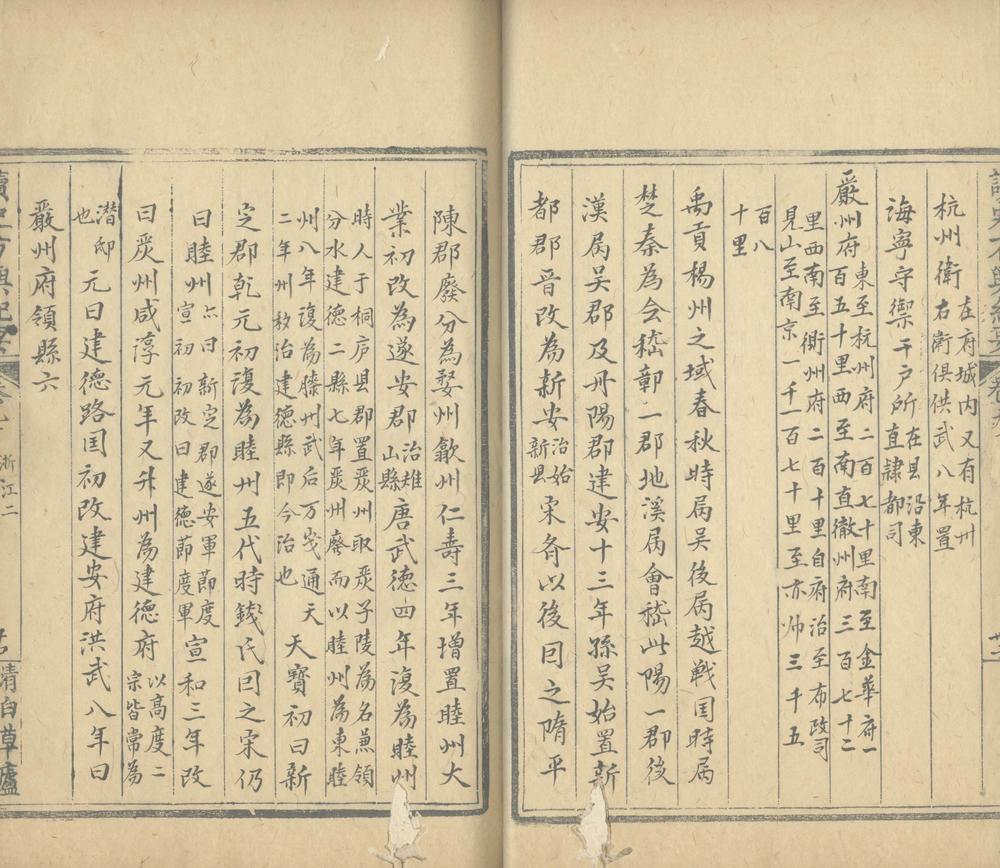 杭州衛
在府城内又有杭州
右衛俱供武八年置
海寧守禦千户所
在县沿東
直隷都司
嚴州府
東至杭州府二百七十里南至金華府一
百五十里西至南直徽州府三百七十二
里西南至衢州府二百十里自府治至布政司
見山至南京一千一百七十里至亦师三千五
百八
十里
禹貢楊州之域春秋時属吴後属越戦国時属
楚秦為会嵇鄣二郡地溪属會嵇此陽一郡後
漢属吴郡及丹陽郡建安十三年孫吴始置新
都郡晋改為新安治始新县宋斉以後囙之隋平
陳郡廢分為婺州歙州仁壽三年增置睦州大
業初改為遂安郡治雉山縣唐武德四年復為睦州
時人于桐庐县郡置嚴州取嚴子陵為名兼領
分水建德二縣七年嚴州廢而以睦州為東睦
州八年復為睦州武后万歲通天
二年州移治建德縣即今治也
天寶初曰新
定郡乾元初復為睦州五代時錢氏囙之宋仍
曰睦州
亦曰新定郡遂安軍節度
宣初初改曰建德節度軍
宣和三年改
曰嚴州咸淳元年又升州為建德府
以髙度二
宗皆常為
潜邸
也
元曰建德路国初改建安府洪武八年曰
嚴州府領縣六
浙江二
清白草廬